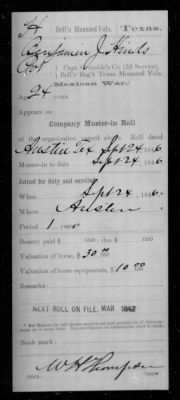 H | Bell's Mounted Vols. | Texas.
Benjamin J. Hinds
Pvt
Capt. Grumble's Co. (2d Service),
Bell's Reg't Texas Mounted Vols.
Mexican War.
Age 24 years.
Appears on
Company Muster-in Roll
of the organization named above. Roll dated
Austin Tex Sept 24, 1846
Muster-in to date Sept 24, 1846
Joined for duty and enrolled:
When Sept 24, 1846.
Where Austin
Period 1 year
Bounty paid $ 100; due $ 100
Valuation of horse, $ 30 00/100
Valuation of horse equipments, $ 10 00/100
Remarks:
NEXT ROLL ON FILE, MAR 1847
Book mark:
W H Thompson
Copyist.